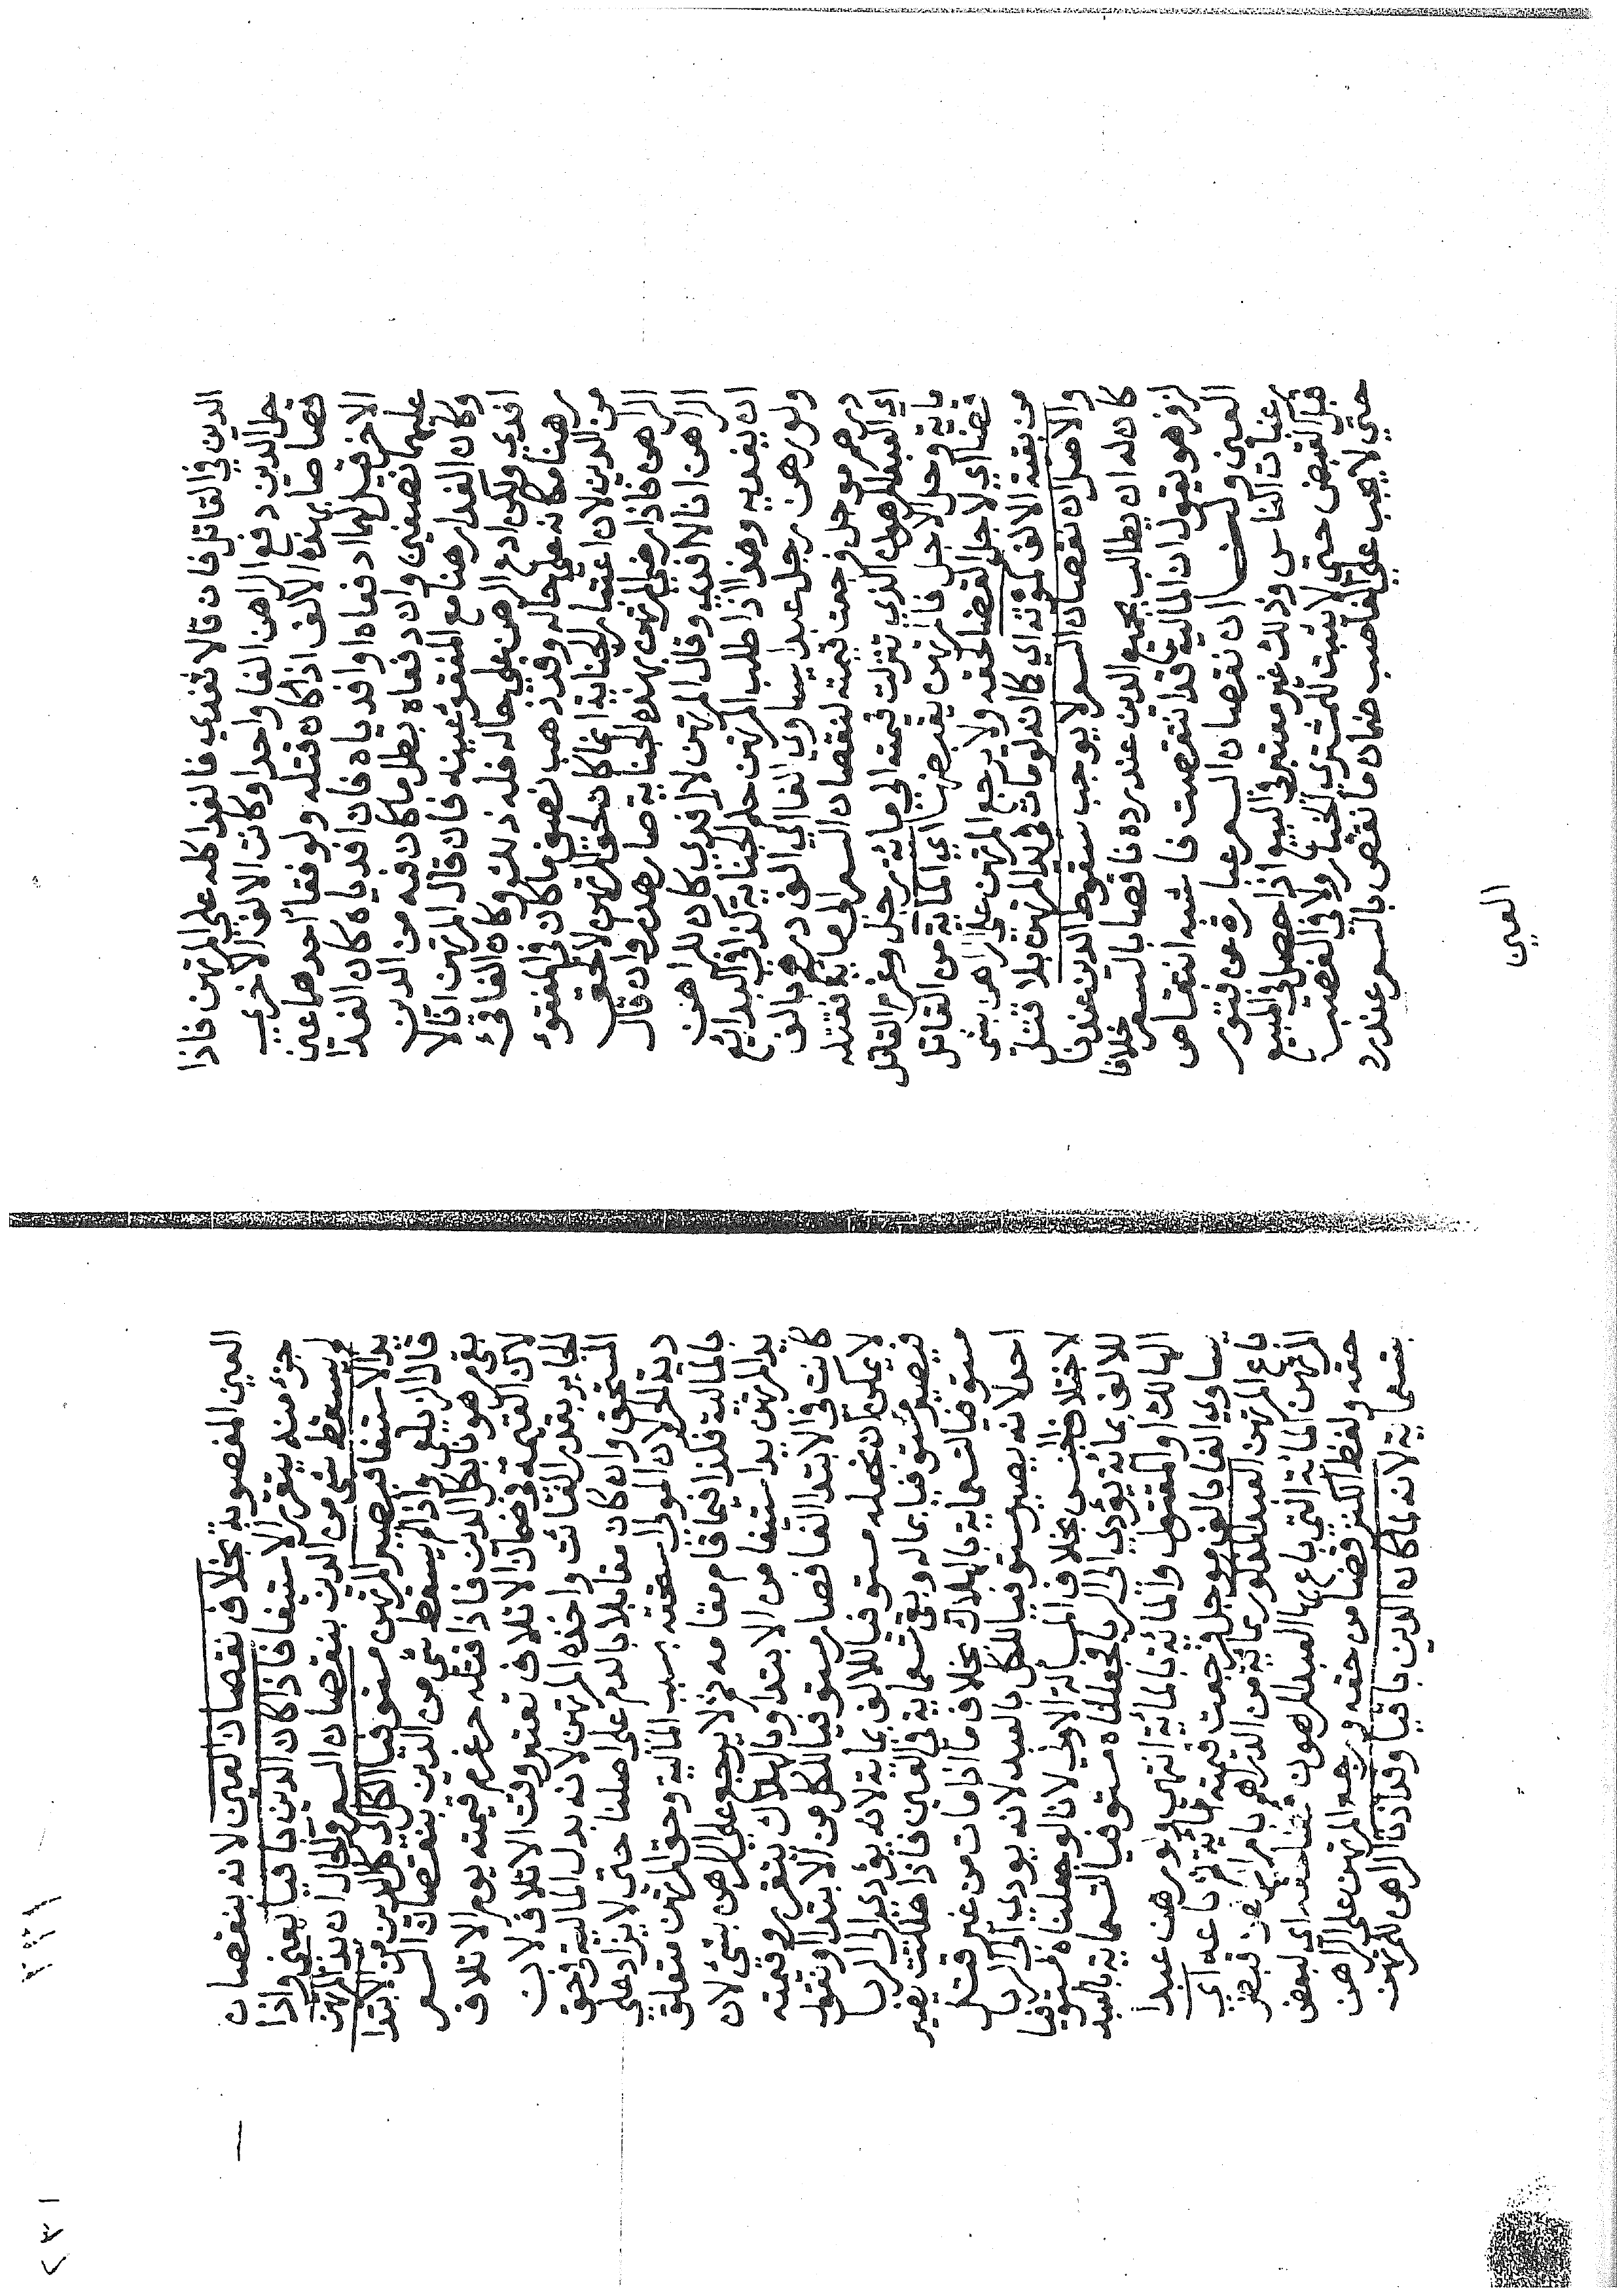 الدين في القاتل فان قالا نفدي فالفدا كله على المرتهن فاذا
حل الدين دفع الراهن الفا واحدا وكانت الالف الاخري
قصاصا بهذه الالف اذا كان قتله ولو فقا احدهما عين
الاخر قيل لهما ادفعاه او افدياه فان افدياه كان الفدا
عليهما نصفين وان دفعاه بطل ما كان فيه من الدين
وكان الفدا رهنا مع المفقوء عينه فان قال المرتهن انا لا
افدي ولكن ادع الرهن على حاله فله ذلك وكان الفاقئ
رهنا مكانه على حاله وقد ذهب نصف ما كان في المفقوء
من الدين لان اعتبار الجناية انما كان لحق المرتهن لا لحق
الراهن فاذا رضي المرتهن بهذه الجناية صار هدرا وان قال
الراهن انا لا افدي وقال المرتهن لا افدي كان للراهن
ان يفديه وهذا اذا طلب المرتهن حكم الجناية كذا في البدايع
ولو رهن رجل عبدا يساوي الفا الى الف درهم بالف
درهم موجل فرجعت قيمته لنقصان السعر الى ماية فقتله
اي العبد المرهون الذي تنزلت قيمته الى مائة رجل وغرم القاتل
ماية وحل الاجل فالمرتهن يقبضها اي الماية من القاتل
قضا اي لاجل القضا لحقه ولا يرجع المرتهن على الراهن بشي
من بقية الالف كموته اي كما انه لو مات في يد المرتهن بلا قتل
والاصل ان نقصان السعر لا يوجب سقوط الدين عندنا
كان له ان يطالب بجميع الدين عند رده ناقصا بالسعر خلافا
لزفر هو يقول ان المالية قد انتقصت فاشبه انتقاص
العين ولنا ان نقصان السعر عبارة عن فتور
رغبات الناس وذلك غير معتبر في البيع اذا حصل في المبيع
قبل القبض حتى لا يثبت للمشتري الخيار ولا في الغصب
حتى لا يجب على الغاصب ضمان ما نقص بالسعر عند رد
العين
العين المغصوبة بخلاف نقصان العين لانه بنقصان
جزء منه يتقرر الاستيفا فاذا كان الدين باقيا يعني واذا
لم يسقط شي من الدين بنقصان السعر والحال ان يد المرتهن
يد الاستيفا فيصير المرتهن مستوفيا الكل الدين من الابتدا
قال الزيلعي واذا لم يسقط شي من الدين بنقصان السعر
بقي مرهونا بكل الدين فاذا قتله حر غرم قيمته يوم الاتلاف
لان القيمة في ضمان الاتلاف تعتبر وقت الاتلاف لان
الجابر بقدر الفائت واخذه المرتهن لانه بدل المالية في حق
المستحق وان كان مقابلا بالدم على اصلنا حتى لا يزاد على
دية الحر لان المولى استحقه بسبب المالية وحق المرتهن متعلق
بالمالية فكذا فيما قام مقامه ثم لا يرجع على الراهن بشئ لان
يد المرتهن يد استيفا من الابتدا وبالهلاك يتقرر وقيمته
كانت في الابتدا الفا فصار مستوفيا للكل من الابتدا او نقول
لا يمكن ان نجعله مستوفيا للالف بماية لانه يؤدي الى الربا
فيصير مستوفيا بماله وبقي تسعماية في العين فاذا هلكت يصير
مستوفيا لتسعماية بالهلاك بخلاف ما اذا مات من غير قتل
احد لانه يصير مستوفيا للكل بالعبد لانه يودي الى الربا
لاختلاف الجنس بخلاف المسألة الاولى لانا لو جعلناه مستوفيا
للالف بمائة يؤدي الى الربا فجعلناه مستوفيا لتسعماية بالعبد
الهالك او المقتول والمائة بالمائة انتهى ولو رهن عبدا
يساوي الفا بالف موجل فرجعت قيمته لماية ثم باعه اي
باع المرتهن العبد المذكور بماية من الدراهم بامر الراهن قبض
المرتهن المائة التي باع بها العبد المرهون قضا لحقه اي لبعض
حقه ولفظ الكنز قضا من حقه ورجع المرتهن على الراهن
بتسعماية لانه لما كان الدين باقيا وقد اذن الراهن للمرتهن